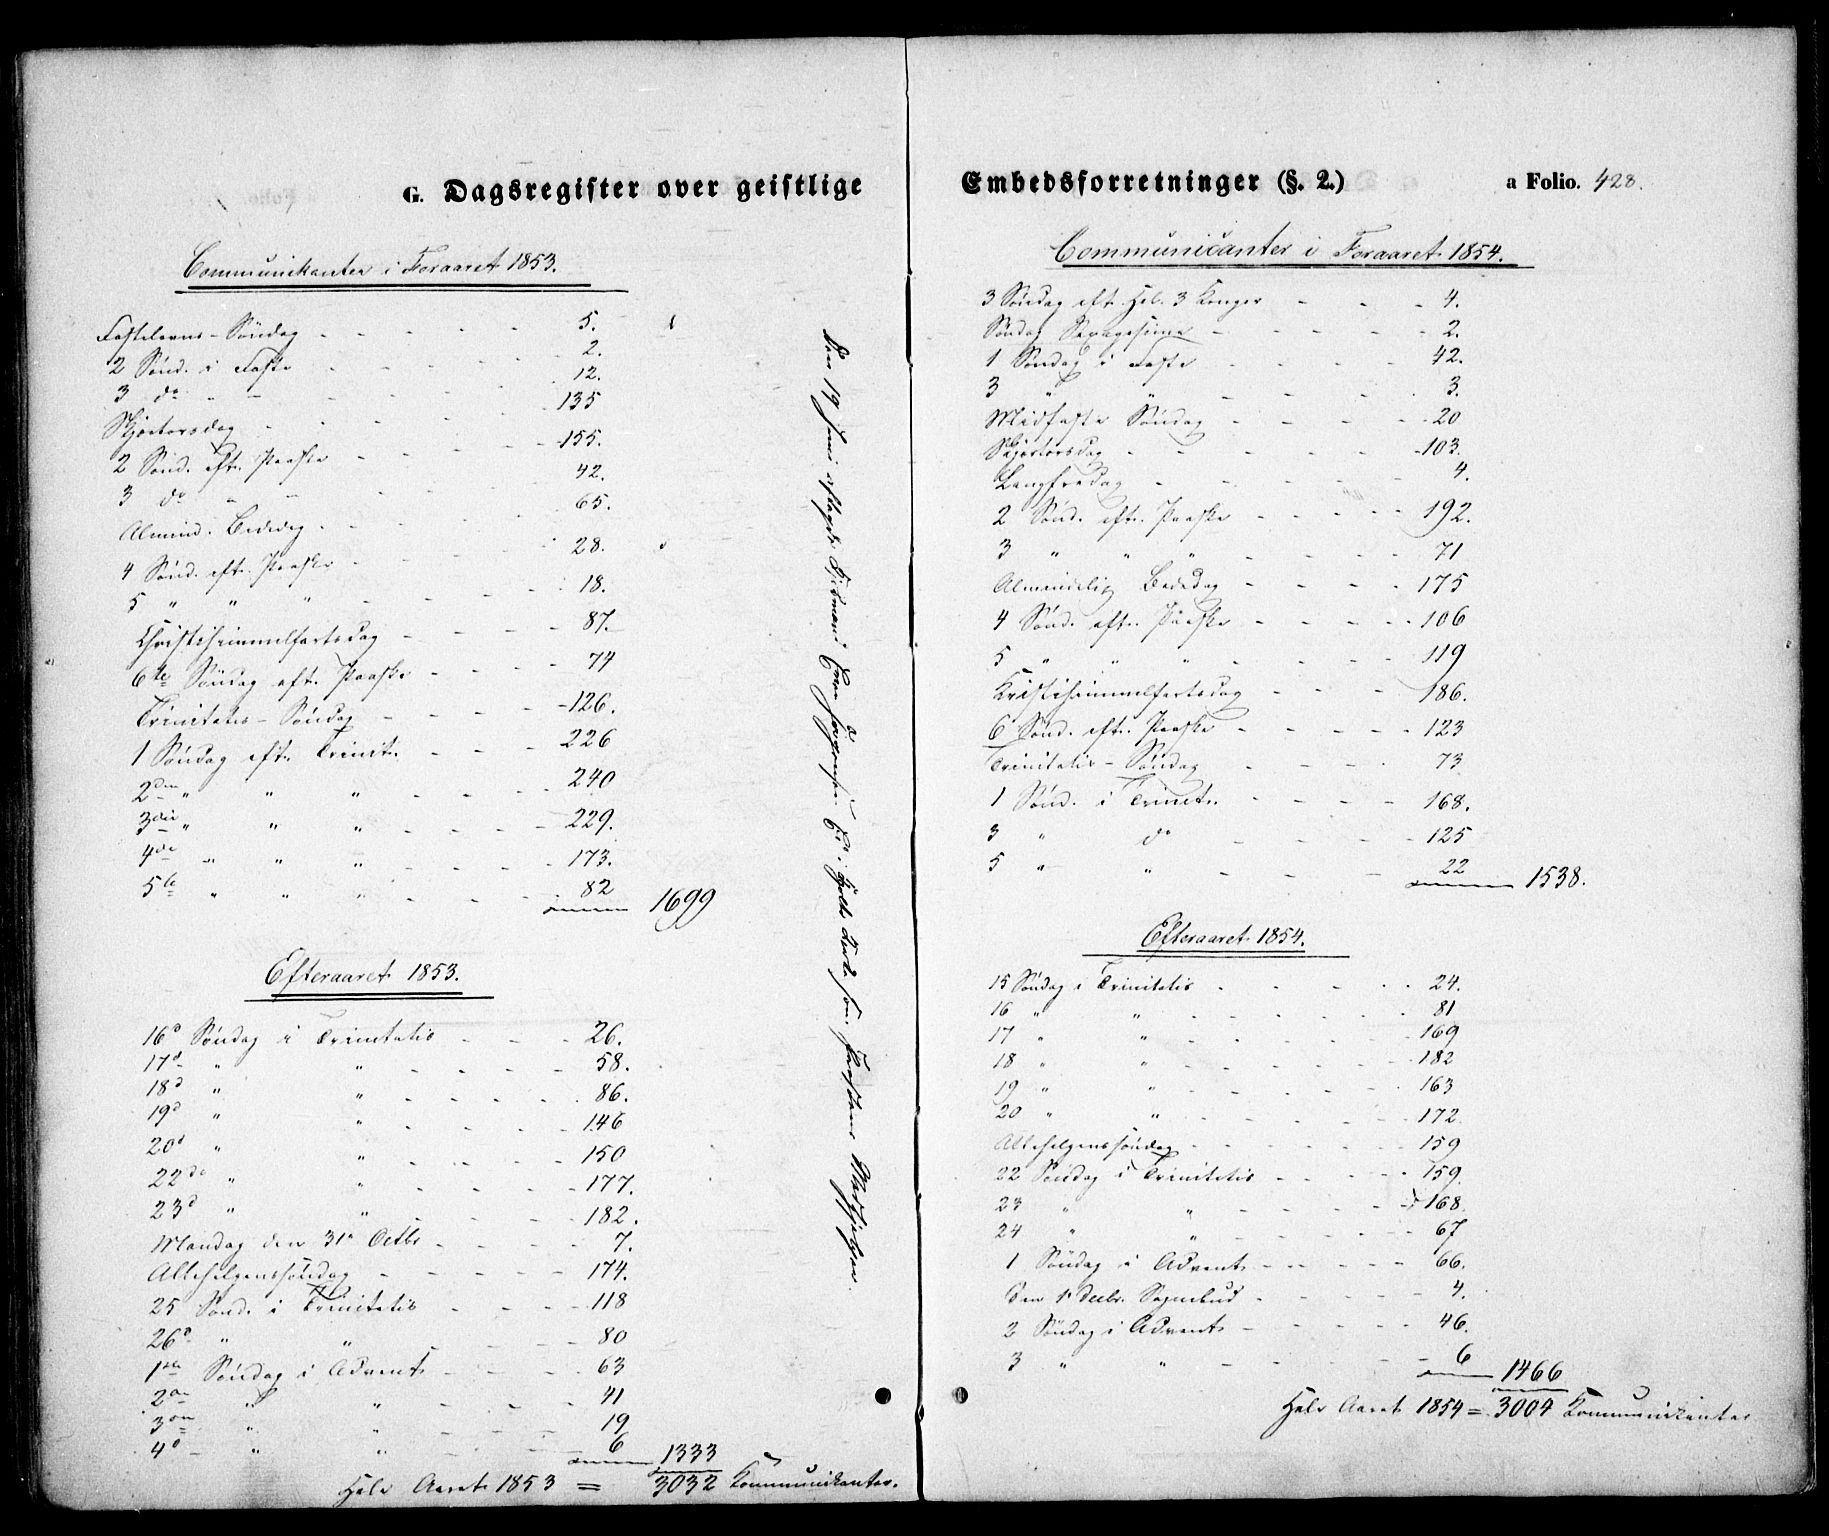 G. Dagsregister over geistlige
Communikanter i Foraaret 1853.
Fastelavns-Søndag - - - - 5.
2 Sønd. i Faste - - - - 2.
3 do " - - - - 12.
Skjærtorsdag - - - - 135
2 Sønd. eft. Paaske - - - - 155.
3 do " " - - - - 42.
Almind. Bededag - - - - 65.
4 Sønd. eft. Paaske - - - - 28.
5 " " " - - - - 18.
Christihimmelfartsdag - - - - 87.
6te Søndag eft. Paaske - - - - 74
Trinitatis-Søndag - - - - 126.
1 Søndag eft. Trinit. - - - - 226
2den " " " - - - - 240
3die " " " - - - - 229.
4de " " " - - - - 173.
5te " " " - - - - 82
1699
Efteraaret 1853.
16d Søndag i Trinitatis - - - 26.
17d " " - - - - 58.
18d " " - - - - 86.
19d " " - - - - 146
20d " " - - - - 150
22de " " - - - - 177.
23d " " - - - - 182.
Mandag den 31e Octbr - - - - 7.
Allehelgenssøndag - - - - 174.
25 Sønd. i Trinitatis - - - - 118
26d " " - - - - 80
1ste Søndag i Advent - - - - 63
2den " " - - - - 41
3den " " - - - - 19
4d " " - - - - 6
1333
Hele Aaret 1853 = 3032 Kommunikanter.
Den 19 Juni aflagde
Embedsforretninger (§. 2.) a Folio. 428.
Communicanter i Foraaret 1854.
3 Søndag eft. Hel. 3 Konger - - - 4.
Søndag Sexagesima - - - - 2.
1 Søndag i Faste - - - - 42.
3 " " - - - - 3.
Midfaste Søndag - - - - 20
Skjærtorsdag - - - - 103.
Langfredag - - - - 4.
2 Sønd. eft. Paaske - - - - 192.
3 " " " - - - - 71
Almindelig Bededag - - - - 175
4 Sønd. eft. Paaske - - - - 106
5 " " " - - - - 119
Kristihimmelfartsdag - - - - 186.
6 Sønd. eft. Paaske - - - - 123
Trinitatis-Søndag - - - - 73
1 Sønd. i Trinit. - - - - 168.
3 " do - - - - 125
5 " " - - - - 22
1538.
Efteraaret 1854.
15 Søndag i Trinitatis - - - - 24.
16 " " - - - - 81
17 " " - - - - 169
18 " " - - - - 182
19 " " - - - - 163
20 " " - - - - 172
Allehelgenssøndag - - - - 159
22 Søndag i Trinitatis - - - - 159.
23 " " - - - - 168.
24 " " - - - - 67
1 Søndag i Advent - - - - 66.
Den 1e Decbr. Sognebud - - - - 4.
2 Søndag i Advent - - - - 46.
3 " " - - - - 6
1466
Hele Aaret 1854 = 3004 Kommunikanter